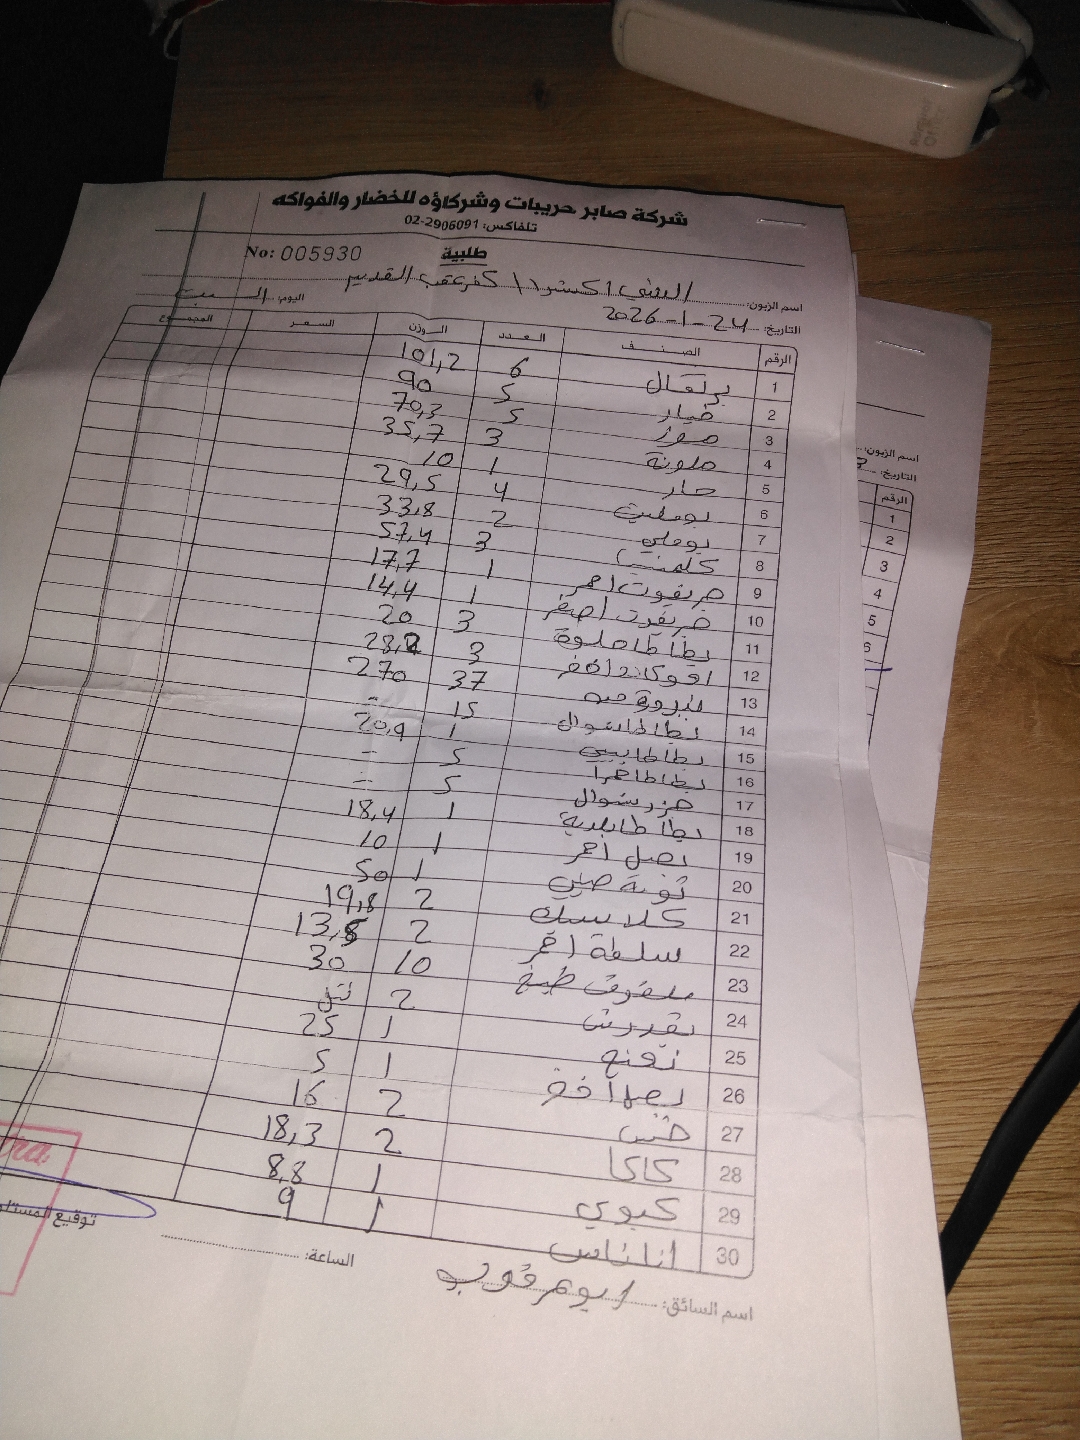 شركة صابر حريبات وشركاؤه للخضار والفواكه
تلفاكس: 02-2906091
طلبية
No: 005930
اسم الزبون: اكسترا \ كفر عقب القديم
التاريخ: 24-1-2026 اليوم: السبت
الرقم الصنف العدد الوزن السعر المجموع
1 برتقال 6 101,2
2 خيار 5 90
3 موز 5 70,3
4 ملونة 3 35,7
5 حار 1 10
6 بومليت 4 29,5
7 بوملي 2 33,8
8 كلمنتينا 3 57,4
9 جريفوت احمر 1 17,7
10 جريفوت اصفر 1 14,4
11 بطاطا حلوة 3 20
12 افوكادو اخضر 3
13 بندورة 37 270
14 بطاطا شوال 15 -
15 بطاطا بيبي 1 20,9
16 بطاطا حمرا 5 =
17 جزر شوال 5 =
18 بطاطا بلدية 1 18,4
19 بصل احمر 1 10
20 ثومة صيني 1 50
21 كلاسيك 2 19,8
22 سلطة احمر 2 13,8
23 ملفوف طبيخ 10 30
24 بقدونس 2
25 نعنع 1 25
26 بصل اخضر 1 5
27 خس 2 16
28 كاكا 2 18,3
29 كيوي 1 8,8
30 اناناس 1 9
اسم السائق: الساعة:
توقيع المستلم
اسم الزبون:
التاريخ:
الرقم
1
2
3
4
5
6